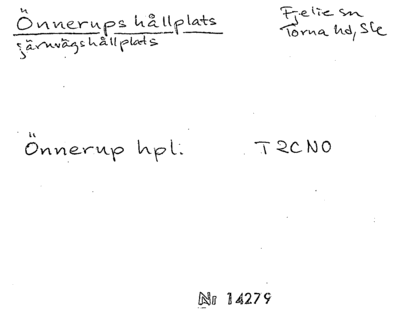 Önnerups hållplats
järnvägshållplats
Fjelie sn
Torna hd, Ske
Önnerup hpl. T2CNO
Nr 14279